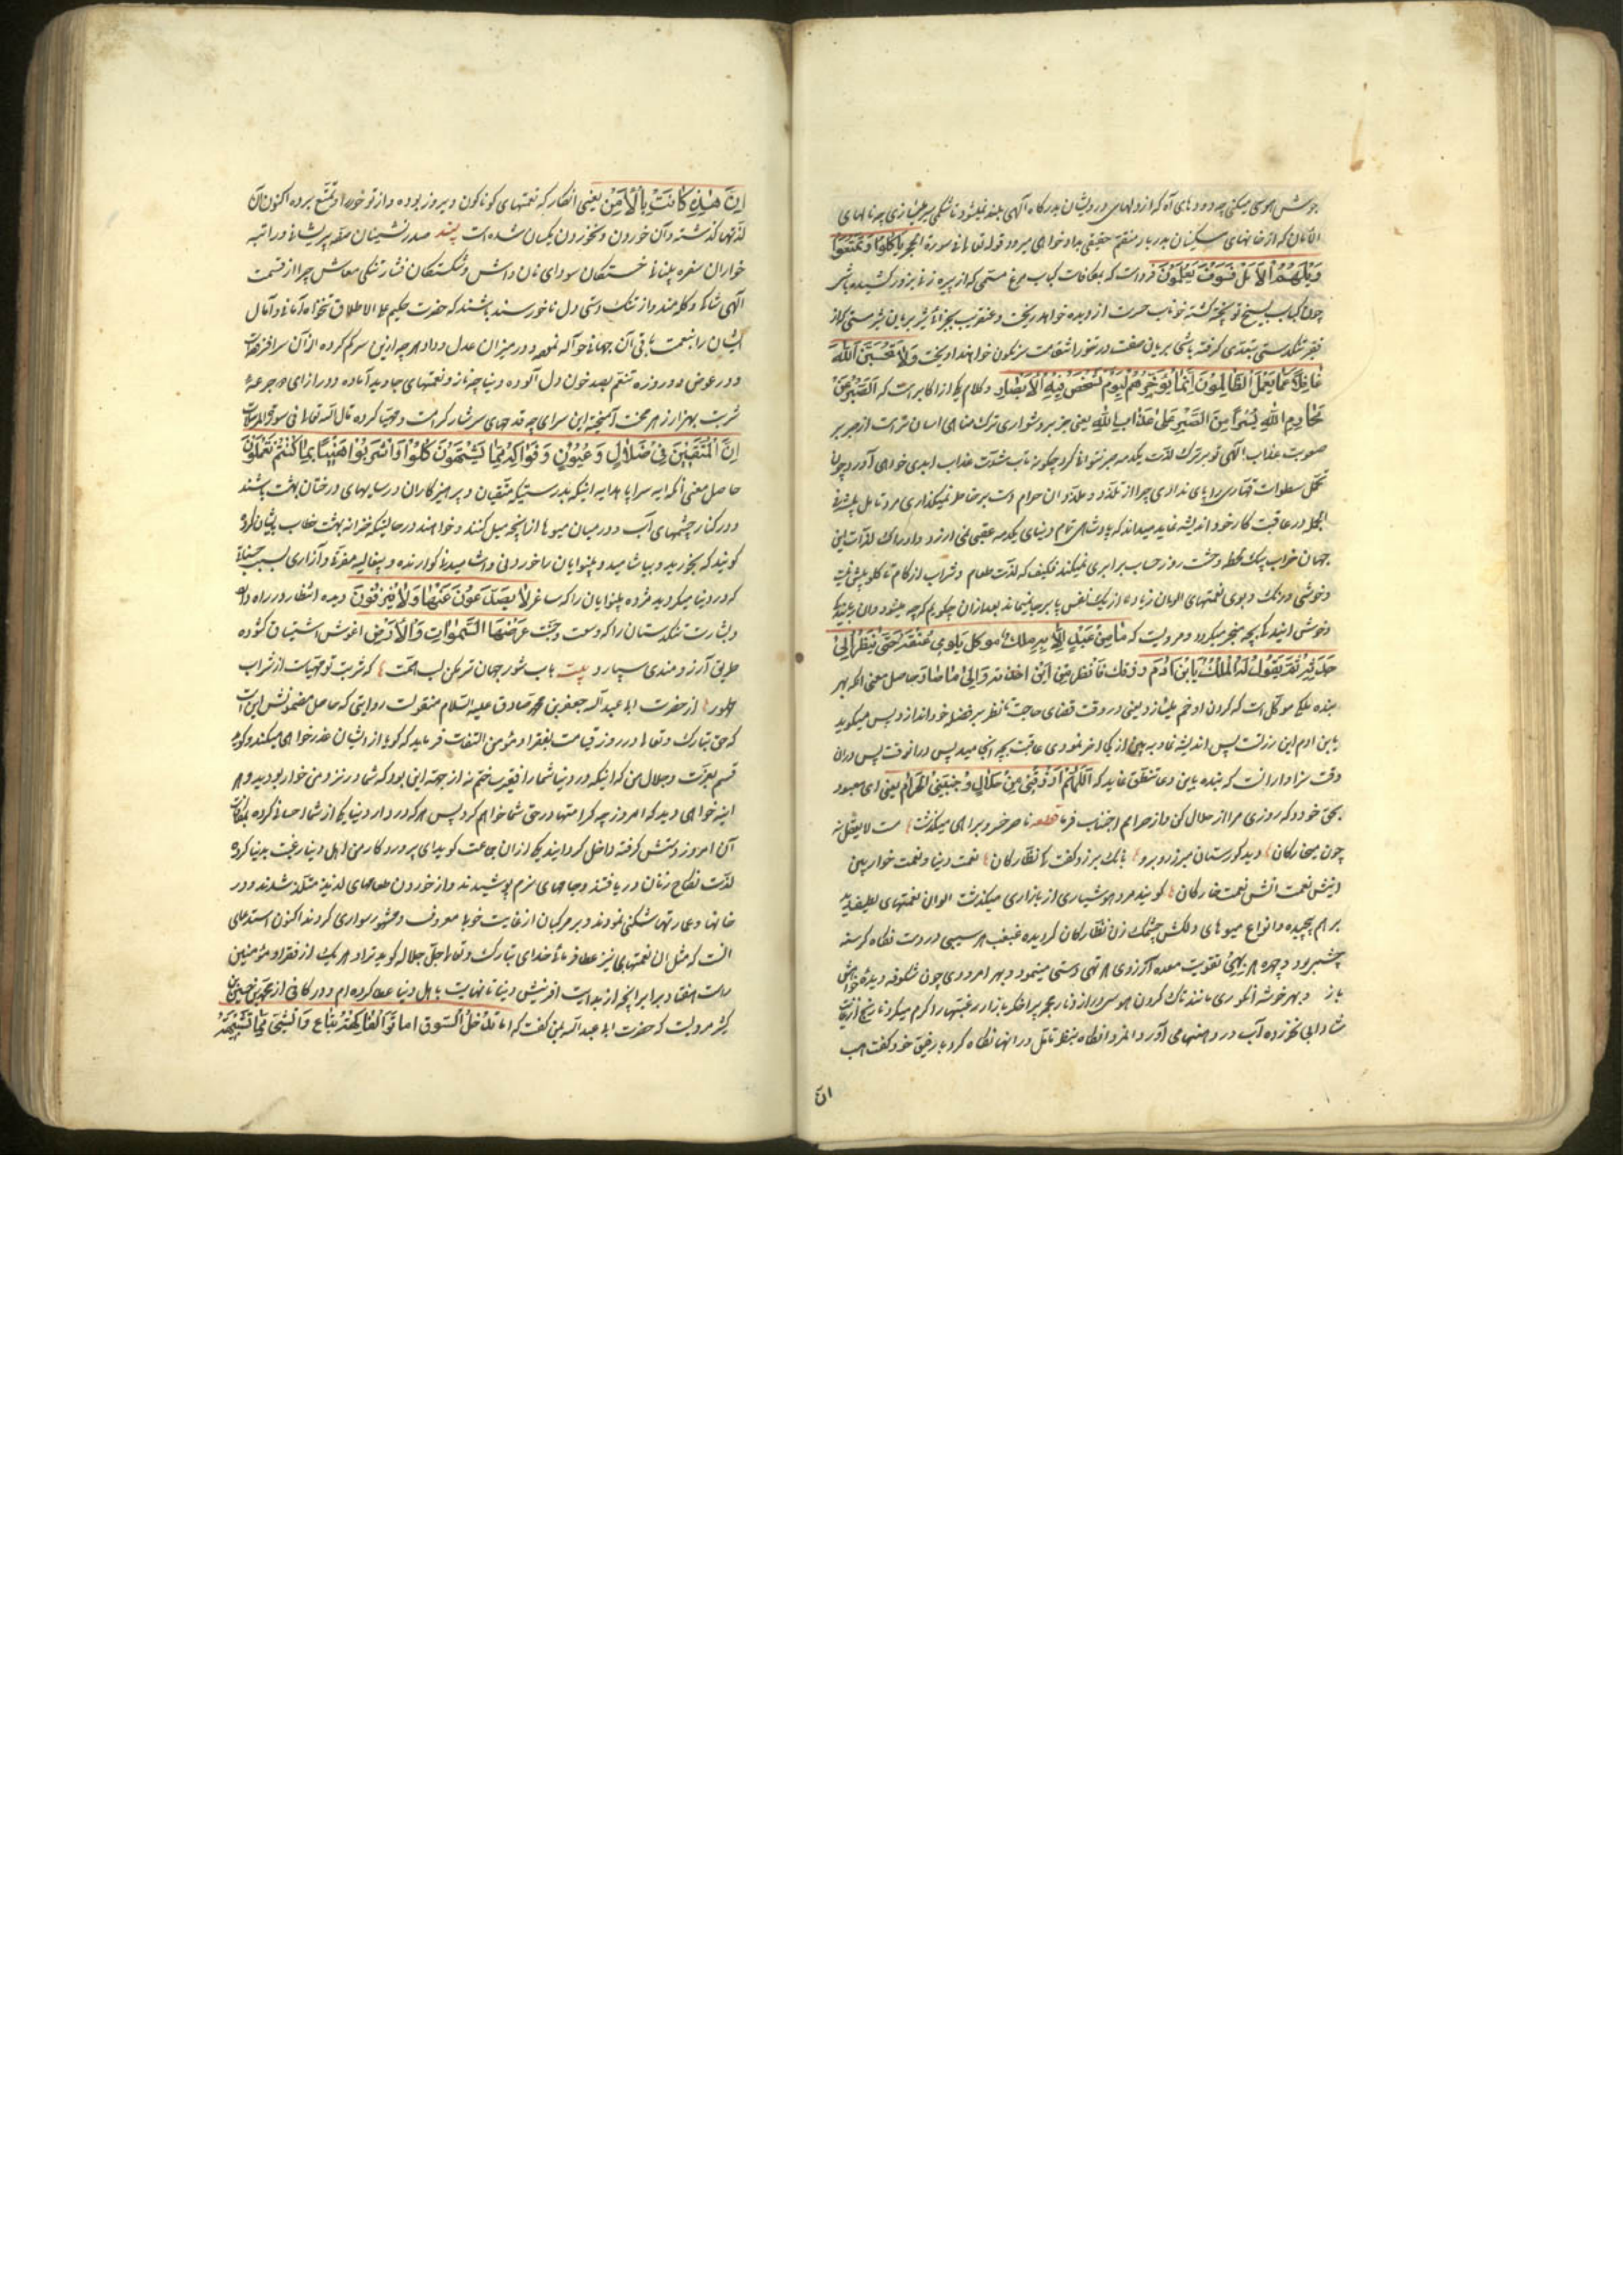 جوش هوسی میکنی چه دودهای آه که از دلهای درویشان بدرکاه الهی بلند نمیشود تا شکمی بر طپانی چه نالهای
الامان که از خانهای مسکینان بدربار منتقم حقیقی بدادخواهی میرود قوله تعالی فی سورة الحجر یاکلوا و یتمتعوا
ویلههم الامل فسوف یعلمون فرداست که بمکافات کباب مرغ ستمی که از پیره زنی بزور کشیده باشی
چون کباب بسیخ تو پخته کشته خوناب حسرت از دیده خواهد ریخت و عنقریب بجزای بره بریان
فقیر تنکدستی بتعدی کرفته باشی بریان صفت در تنور انتقامت سرنکون خواهند آویخت ولا تحسبن الله
غافلا عما یعمل الظالمون انما یؤخرهم لیوم تشخص فیه الابصار و کلام یکی از اکابر است که الصبر عن
محارم الله یسرا من الصبر علی عذاب الله یعنی صبر بر دشواری ترک مناهی اسان تر است از صبر بر
صعوبت عذاب الهی تو بر ترک لذت یکدمه صبر نتوانی کرد چکونه تاب شدت عذاب ابدی خواهی آورد و چون
تحمل سطوات قهاری را پای نداری چرا از تلذذ الوان حرام دست بر خاطر نمیکذاری مرد تامل پیشه
بحکم در عاقبت کار خود اندیشه نماید میداند که پادشاهی تمام دنیای یکدمه عقبی نمی ارزد و ادراک لذات این
جهان خراب بیک لحظه وحشت روز حساب برابری نمیکند فکیف که لذت طعام و شراب از کام تا کلو بیش نیست
و خوشی و رنک و بوی نعمتهای الوان زیاده از یک نفس پا برجا نمیماند بعد از آن چکویم که چه میشود
و خوشی ایند که بچه منجر میکردد مرویست که ما من عبد الا و به ملک موکل یلوی عنقه حتی ینظر الی
حدثه ثم یقول له الملک یابن آدم رزقک فانظر من این اخذته والی ما صار حاصل معنی انکه بهر
بنده ملکی موکل است که کردن او خم میسازد یعنی در وقت قضای حاجت تا نظر بر فضله خود اندازد پس میکوید
یابن ادم این رزقتست پس اندیشه نما و ببین از کجا اخذ نمودی عاقبت بچه انجامید پس در انوقت پس دران
وقت سزاوار انست که بنده باین دعا تنطق نماید که اللهم ارزقنی من حلال وجنبنی الحرام یعنی ای معبود
بحق خود که روزی مرا از حلال کن و از حرامم اجتناب فرما قطعه ناصر خسرو براهی میکذشت مست لایعقل نه
چون میخارکان دید کورستان مبرز روبرو بانک برزد کفت کای نظارکان نعمت دنیا و نعمت خواره بین
اینش نعمت انش نعمت خارکان کویند مرد هوشیاری از بازاری میکذشت الوان نعمتهای لطیف
بر هم پیچیده و انواع میوهای دلکش چشمک زن نظارکان کردیده غبغب هر سیبی در دست نکاه کرسنه
چشم بود و چهره هر بهی تقویت معده آرزوی هر تهی دستی مینمود و بهر امرودی چون شکوفه دیده خواهش
باز و بهر خوشه انکوری مانند تاک کردن هوس دراز و نار بازار رغبتها را کرم میکرد نارنج
شادابی نخورده آب در دهنها می آورد المرد انکاه بنظر تامل در انها نکاه کرد با رفیق خود کفت
ان
ان هذه کانت بالامس یعنی انظار که نعمتهای کوناکون دیروز بوده و از تو خورد و تمتع برده اکنون آن
لذتها کذشته و آن خوردن و نخوردن یکسان شده است پند صدرنشینان صفه پریشانی و راتبه
خواران سفره بینوائی خستکان سودای نان و آش و شکستکان فشار تنکی معاش چرا از قسمت
الهی شاکی و کله مند و از تنک دستی دل ناخورسند باشند که حضرت حکیم علی الاطلاق تنخواه امانی و آمال
ایشان را بنعمت باقی آن جهانی حواله نموده و در میزان عدل و داد هرچه از این سر کم کرده از آن سر افزوده است
و در عوض دو روزه تنعم بصد خون دل آلوده دنیا چه ناز و نعمتهای جاوید آماده و در ازای هر جرعه
شربت بهزار زهر محنت آمیخته این سرای چه قدحهای سرشار کرامت مهیا کرده قال الله تعالی فی سورة المرسلات
ان المتقین فی ظلال وعیون وفواکه مما یشتهون کلوا واشربوا هنیئا بما کنتم تعملون
حاصل معنی انکه ایه سراپا هدایه اینکه بدرستیکه متقیان و پرهیزکاران در سایهای درختان بهشت باشند
و در کنار چشمهای آب و در میان میوها از انچه میل کنند و خواهند در حالتیکه خزانه بهشت خطاب بایشان کرده
کویند که بخورید و بیاشامید و بینوایان را خوردنی و اشامیدنی کوارنده و بیغایله مضرت و آزاری بسبب حسناتی
که در دنیا میکردید مژده بینوایان را که ساغر لا یصدعون عنها ولا ینزفون دیده انتظار در راه دارد
و بشارت تنکدستان را که وسعت و جنت عرضها السموات والارض اغوش اشتیاق کشوده
طریق آرزومندی سپارد بیت باب شور جهان تر مکن لب همت که شربت تو مهیاست از شراب
طهور از حضرت ابا عبد الله جعفر بن محمد صادق علیه السلام منقولست روایتی که حاصل مضمونش این است
که حق تبارک و تعالی در روز قیامت بفقراء مؤمن التفات فرماید که کویا از ایشان عذرخواهی میکند و کوید
قسم بعزت و جلال من که اینکه در دنیا شما را فقیر ساختم نه از جهة این بود که شما در نزد من خوار بودید و هر
اینه خواهی دید که امروز چه کرامتها در حق شما خواهم کرد پس هرکه در دار دنیا یکی از شما احسانی کرده بمکافات
آن امروز دستش کرفته داخل کردانید یکی از ان جماعت کوید ای پروردکار من اهل دنیا رغبت بدنیا کرده
لذت نکاح زنان دریافتند و جامهای نرم پوشیدند و از خوردن طعامهای لذیذ متلذذ شدند و در
خانها و عمارتها سکنی نمودند و بر مرکبان از غایت خوبی معروف و مشهور سواری کردند اکنون استدعای
انست که مثل ان نعمتها بما نیز عطا فرمائی خدای تبارک و تعالی جل جلاله کوید ترا و هر یک از فقراء مؤمنین
راست هفتاد برابر انچه از بدایت افرینش دنیا تا نهایت باهل دنیا عطا کرده ام و در کافی از محمد بن حسین
کثیر مرویست که حضرت ابی عبد الله بمن کفت که اما تدخل السوق اما تری الفاکهة تباع والشیء مما تشتهیه